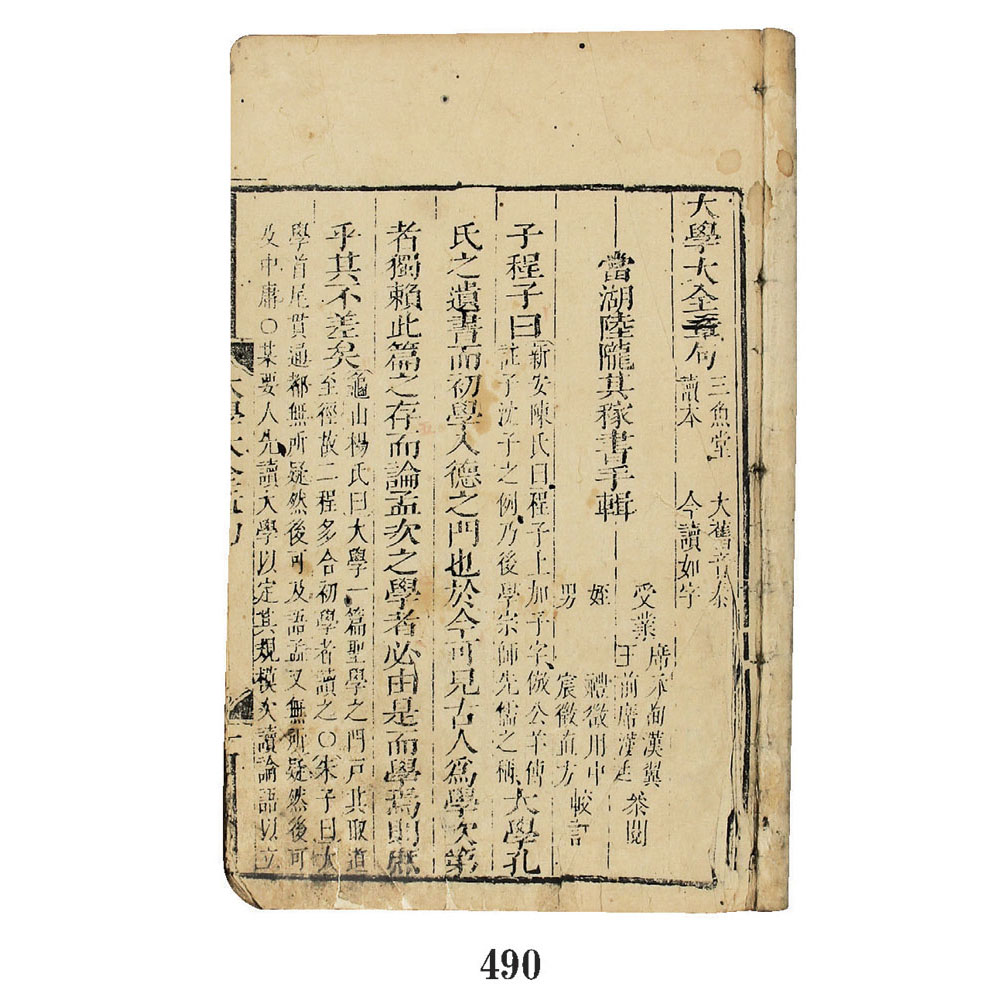 大學大全章句 三魚堂讀本 大舊音泰今讀如字
當湖陸隴其稼書手輯
受業 席永恂漢翼 王前席漢廷 叅閱
姪 禮徵用中 男 宸徵直方 較訂
子程子曰 新安陳氏曰程子上加子字倣公羊傳註子沈子之例乃後學宗師先儒之稱 大學孔
氏之遺書而初學入德之門也於今可見古人爲學次第
者獨賴此篇之存而論孟次之學者必由是而學焉則庶
乎其不差矣 龜山楊氏曰大學一篇聖學之門戶其取道至徑故二程多合初學者讀之〇朱子曰大
學首尾貫通都無所疑然後可及語孟又無所疑然後可
及中庸〇某要人先讀大學以定其規模次讀論語以立
大學大全章句
490